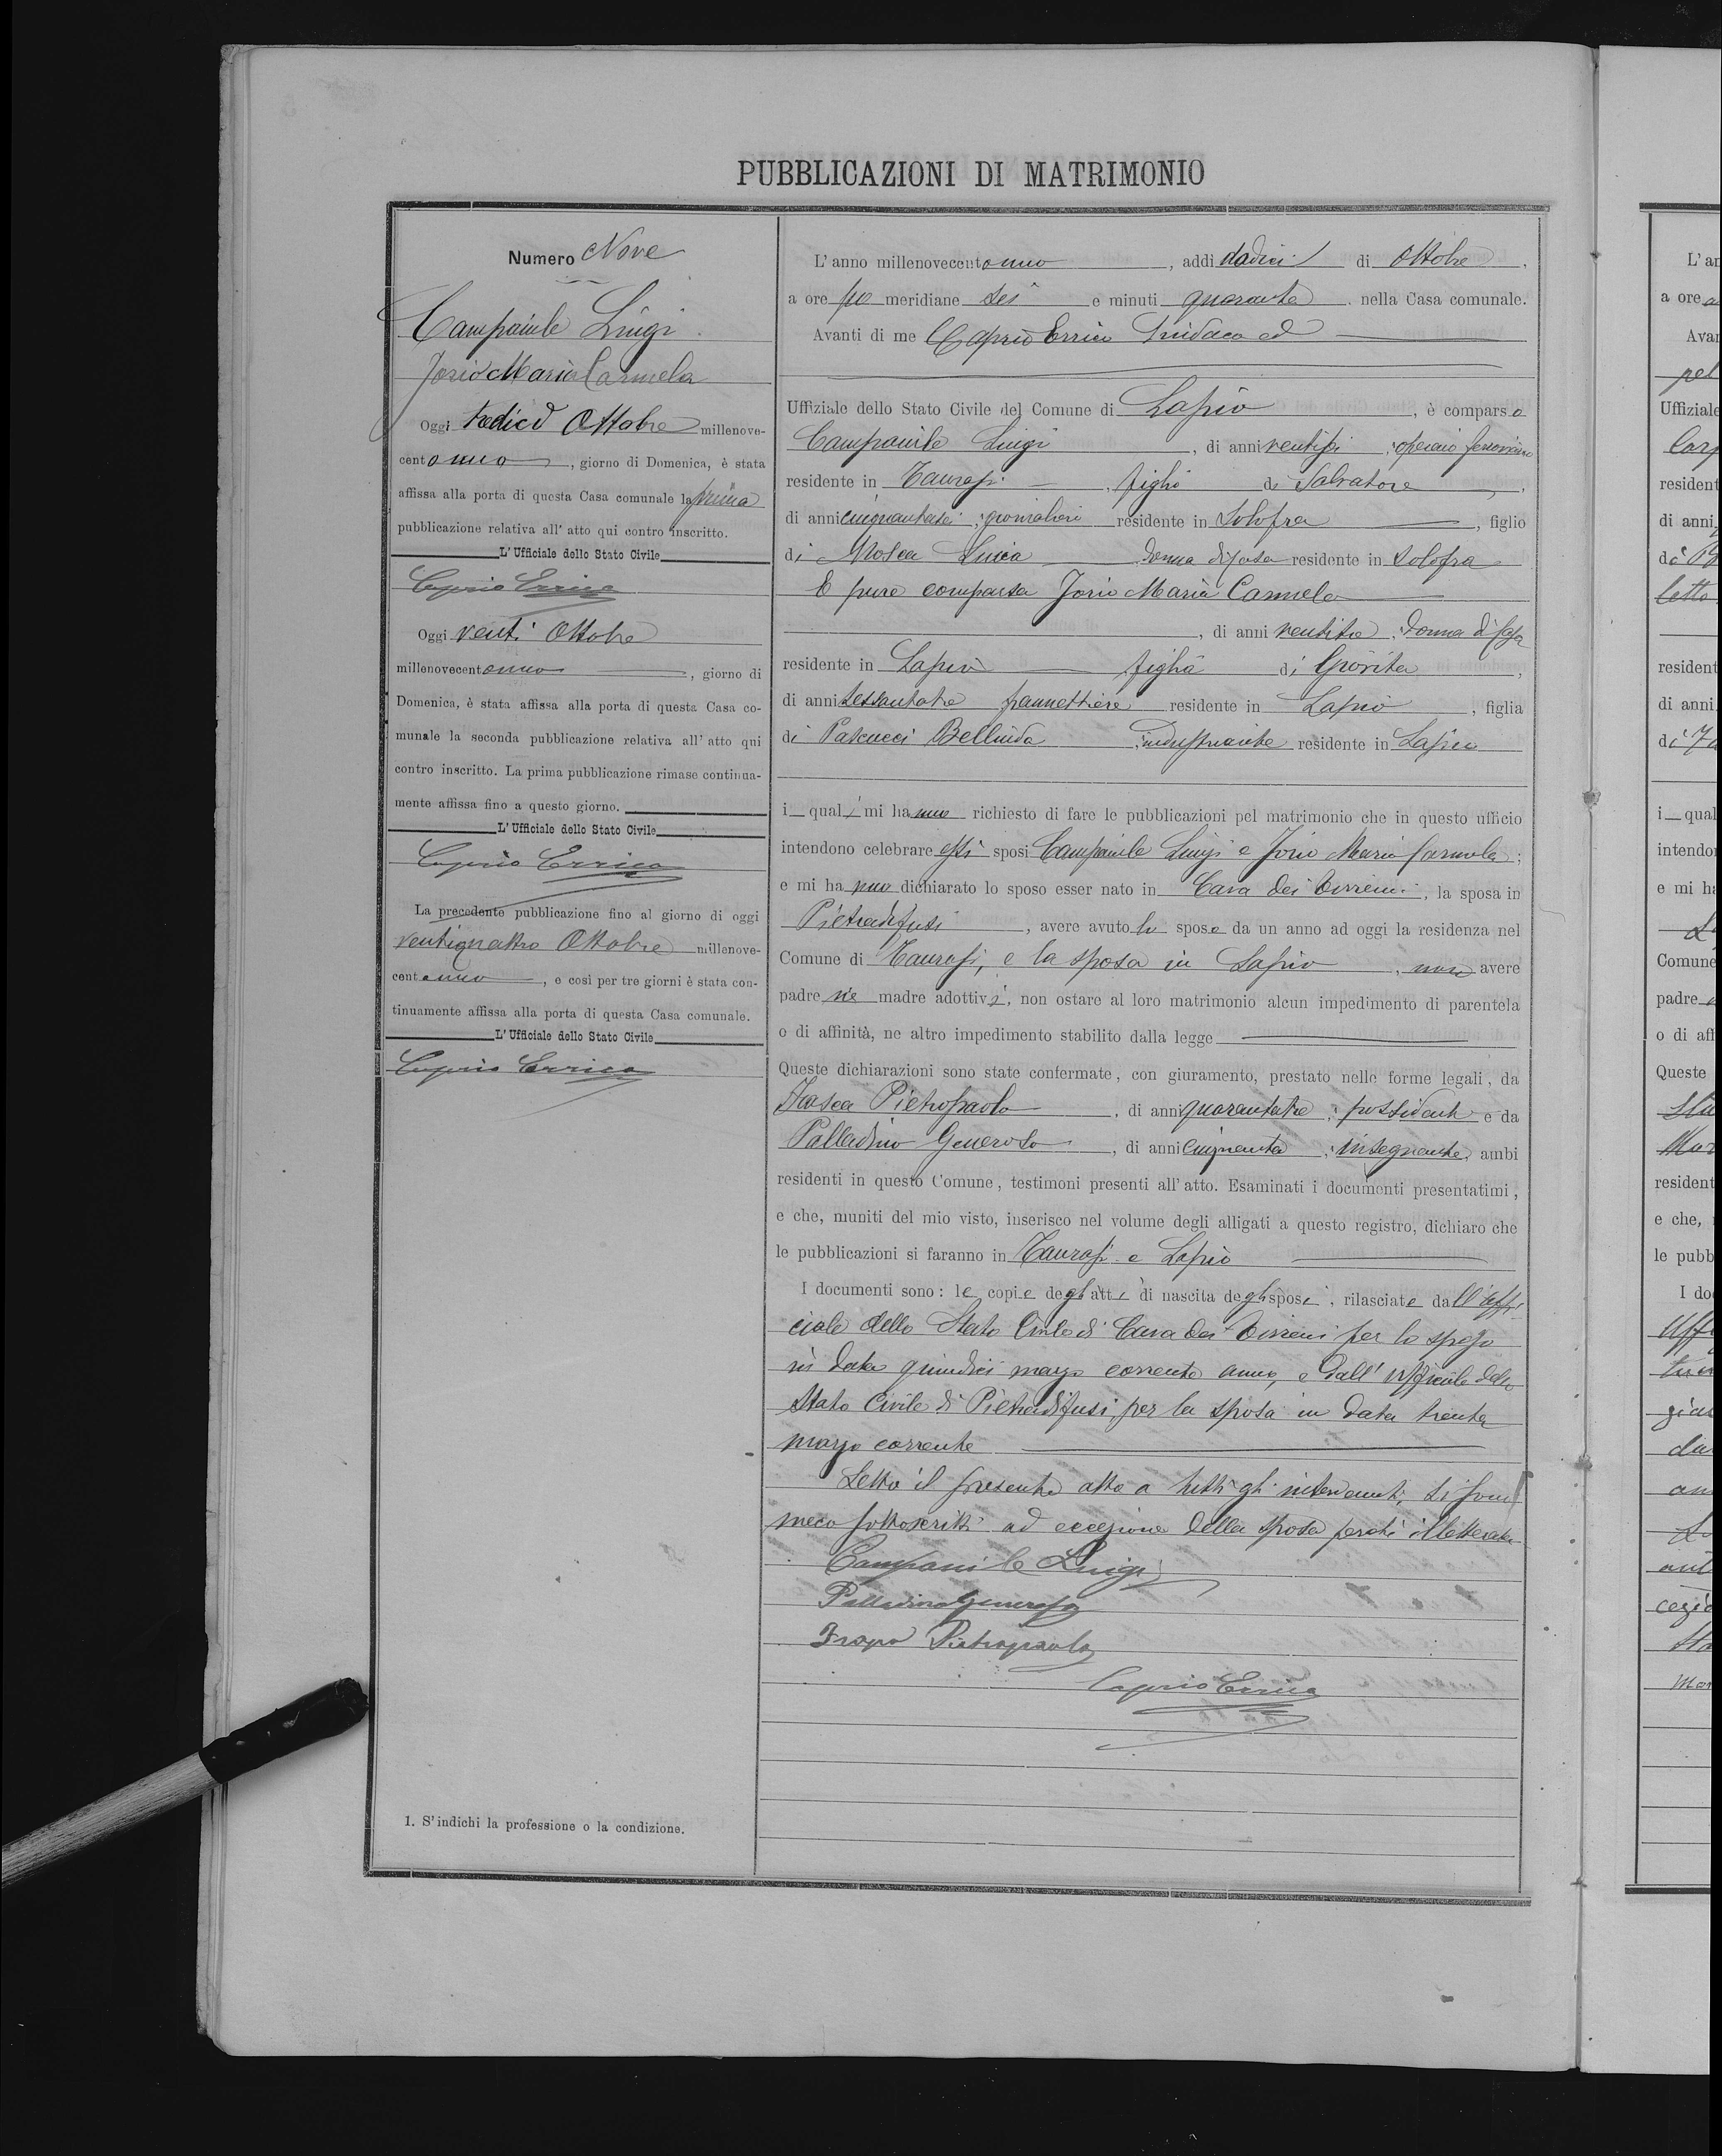 PUBBLICAZIONI DI MATRIMONIO
Numero Nove
Campanile Luigi
Jorio Maria Carmela
Oggi tredici Ottobre millenove-
cento uno, giorno di Domenica, è stata
affissa alla porta di questa Casa comunale la prima
pubblicazione relativa all' atto qui contro inscritto.
L'Ufficiale dello Stato Civile
Caprio Errico
Oggi venti Ottobre
millenovecento uno, giorno di
Domenica, è stata affissa alla porta di questa Casa co-
munale la seconda pubblicazione relativa all' atto qui
contro inscritto. La prima pubblicazione rimase continua-
mente affissa fino a questo giorno.
L'Ufficiale dello Stato Civile
Caprio Errico
La precedente pubblicazione fino al giorno di oggi
ventiquattro Ottobre millenove-
cento uno, e così per tre giorni è stata con-
tinuamente affissa alla porta di questa Casa comunale.
L'Ufficiale dello Stato Civile
Caprio Errico
1. S'indichi la professione o la condizione.
L' anno millenovecento uno, addì dodici di Ottobre,
a ore po meridiane sei e minuti quaranta, nella Casa comunale.
Avanti di me Caprio Errico Sindaco ed
Uffiziale dello Stato Civile del Comune di Lapio, è comparso
Campanile Luigi, di anni ventisei, operaio ferroviario
residente in Taurasi, figlio di Salvatore,
di anni cinquantasei, giornaliere residente in Solofra, figlio
di Mosca Luisa donna di casa residente in Solofra
È pure comparsa Jorio Maria Carmela
, di anni ventitre, donna di casa
residente in Lapio figlia di
di anni sessantatre pannettiere residente in Lapio, figlia
di Pascucci Bellinda residente in Lapio
i quali mi hanno richiesto di fare le pubblicazioni pel matrimonio che in questo ufficio
intendono celebrare essi sposi Campanile Luigi e Jorio Maria Carmela;
e mi hanno dichiarato lo sposo esser nato in Cava dei Tirreni, la sposa in
Pietradifusi, avere avuto lo sposo da un anno ad oggi la residenza nel
Comune di Taurasi, e la sposa in Lapio, non avere
padre nè madre adottivi, non ostare al loro matrimonio alcun impedimento di parentela
o di affinità, ne altro impedimento stabilito dalla legge
Queste dichiarazioni sono state confermate, con giuramento, prestato nelle forme legali, da
Pietropaolo, di anni quarantatre, possidente e da
Palladino Generoso, di anni cinquanta, insegnante, ambi
residenti in questo Comune, testimoni presenti all' atto. Esaminati i documenti presentatimi,
e che, muniti del mio visto, inserisco nel volume degli alligati a questo registro, dichiaro che
le pubblicazioni si faranno in Taurasi e Lapio
I documenti sono: le copie degli atti di nascita degli sposi, rilasciate dall'uffi-
ciale dello Stato Civile di Cava dei Tirreni per lo sposo
in data quindici marzo corrente anno, e dall'ufficiale dello
Stato Civile di Pietradifusi per la sposa in data trenta
marzo corrente
Letto il presente atto a tutti gli intervenuti, si sono
meco sottoscritti ad eccezione della sposa perchè illetterata
Campanile Luigi
Palladino Generoso
Pietropaolo
Caprio Errico